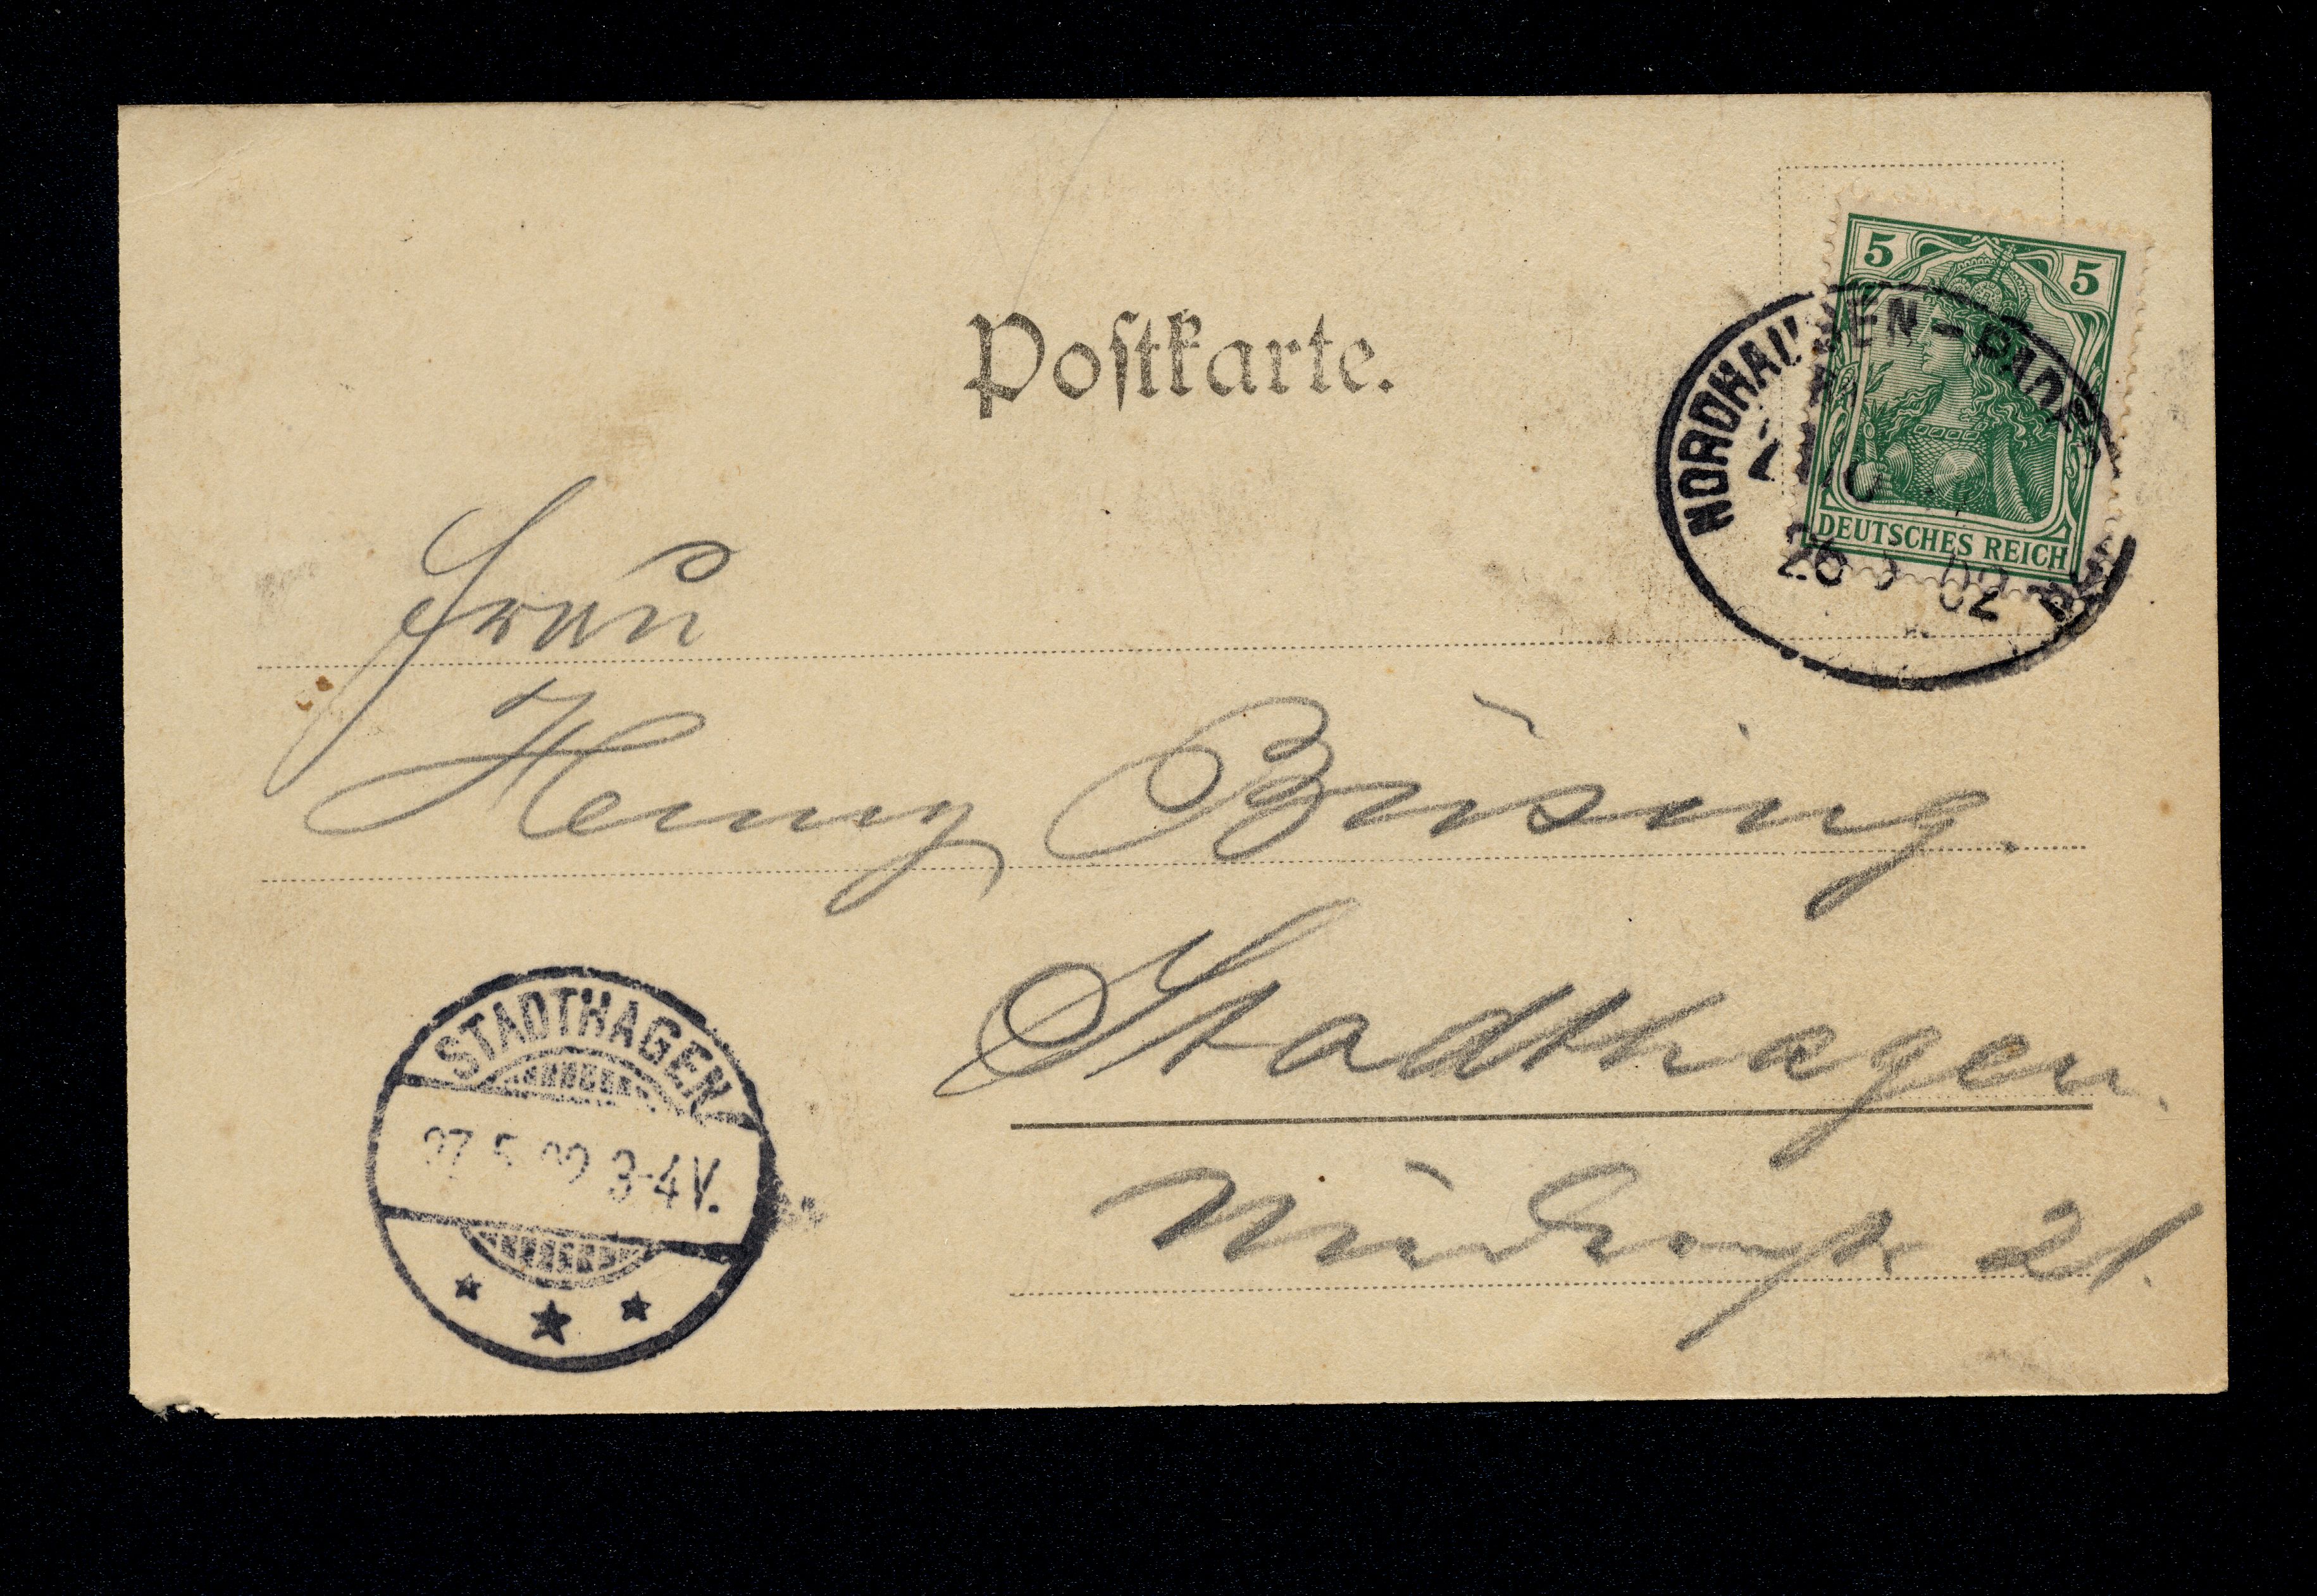 Postkarte.
5 5
DEUTSCHES REICH
NORDHAUSEN -
26 5 02
Frau
Henny Büsing.
Stadthagen.
21.
STADTHAGEN
27.5.02 3-4V.